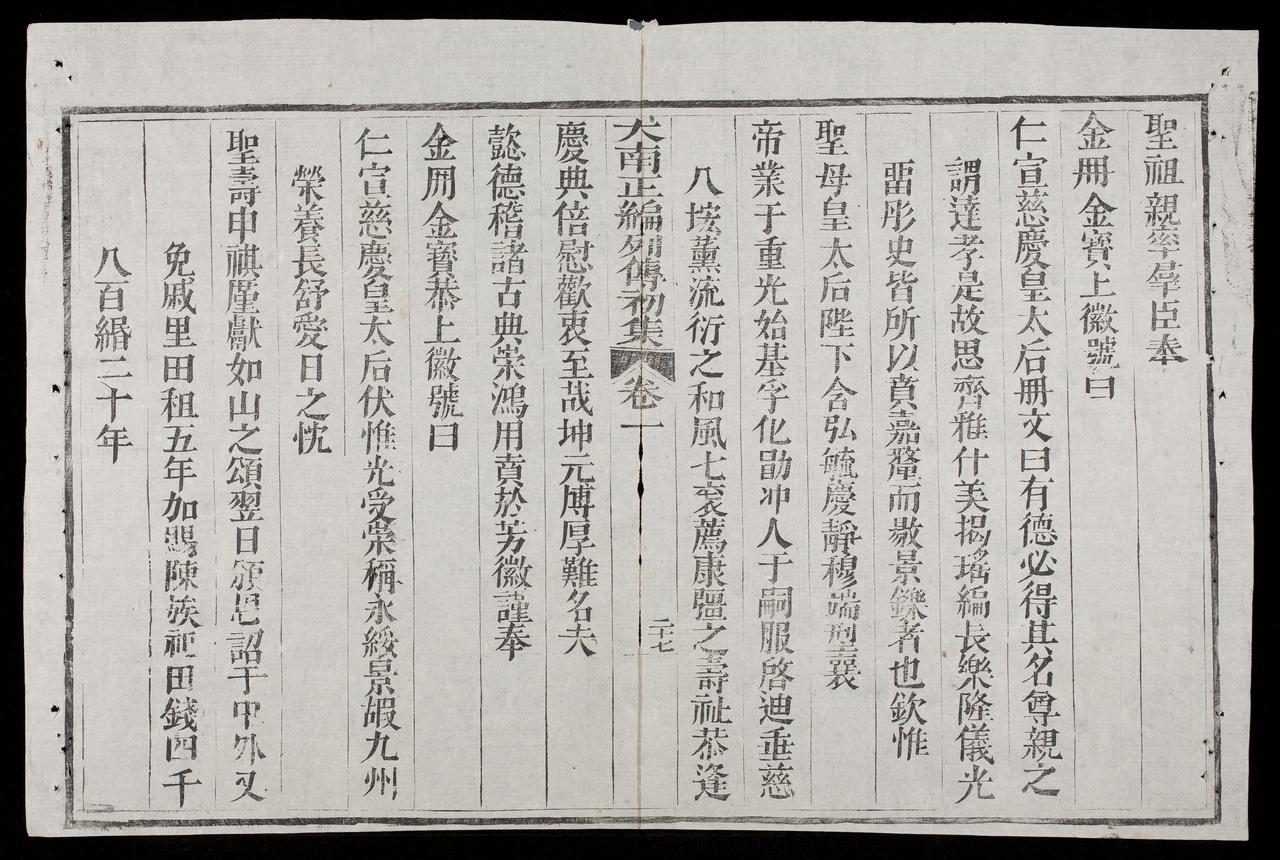 聖祖親率羣臣奉
金冊金寶上徽號曰
仁宣慈慶皇太后冊文曰有德必得其名尊親之
謂達孝是故思齊雅什美揭瑤編長樂隆儀光
畱彤史皆所以賁嘉釐而敭景鑠者也欽惟
聖母皇太后陛下含弘毓慶靜穆端型襄
帝業于重光始基孚化勖冲人于嗣服啓迪垂慈
八垓薰流衍之和風七袠薦康彊之壽祉恭逢
大南正編列傳初集 卷一 二十七
慶典倍慰歡衷至哉坤元博厚難名夫
懿德稽諸古典崇鴻用賁於芳徽謹奉
金冊金寶恭上徽號曰
仁宣慈慶皇太后伏惟光受崇稱永綏景嘏九州
榮養長舒愛日之忱
聖壽申祺厪獻如山之頌翌日頒恩詔于中外又
免戚里田租五年加賜陳族祀田錢四千
八百緡二十年